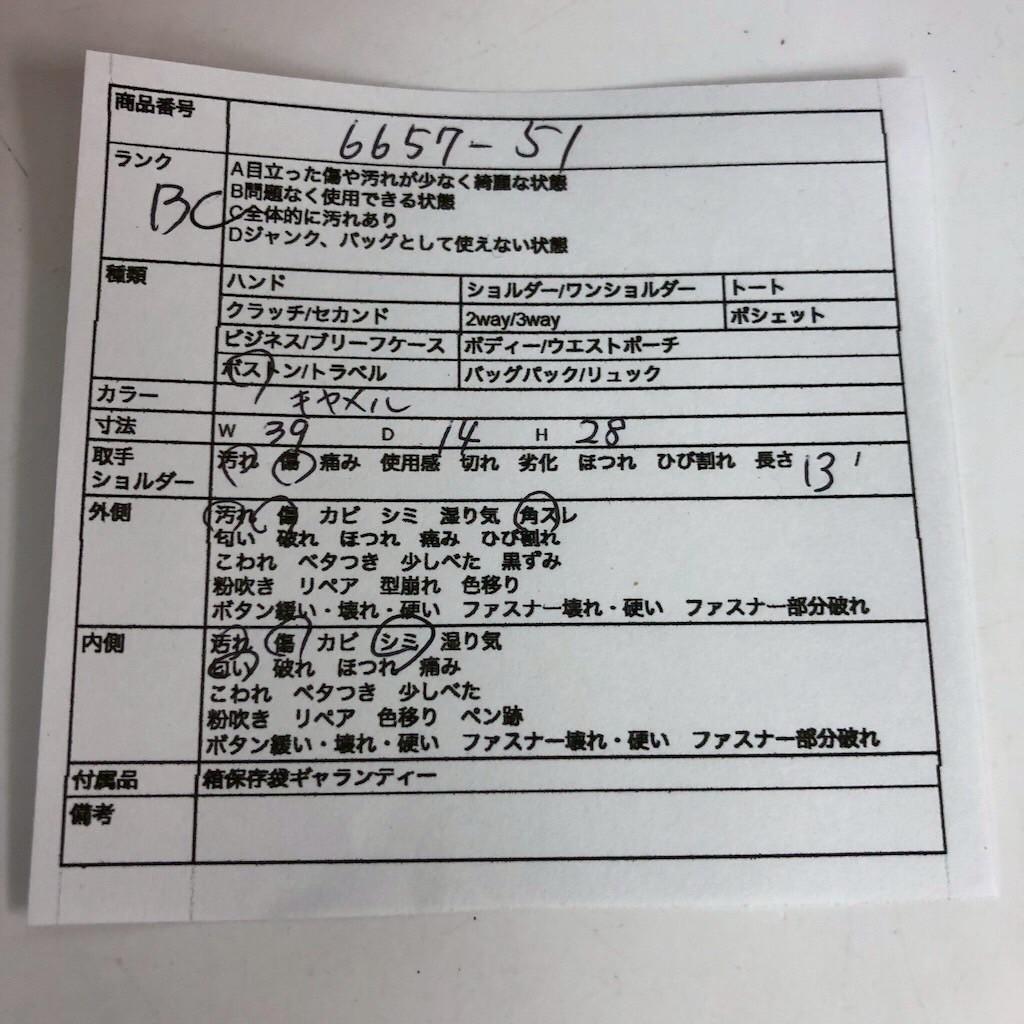 商品番号 6657-51
ランク BC
A目立った傷や汚れが少なく綺麗な状態
B問題なく使用できる状態
C全体的に汚れあり
Dジャンク、バッグとして使えない状態
種類 ハンド ショルダー/ワンショルダー トート
クラッチ/セカンド 2way/3way ポシェット
ビジネス/ブリーフケース ボディー/ウエストポーチ
ボストン/トラベル バッグパック/リュック
カラー キャメル
寸法 W 39 D 14 H 28
取手 汚れ 傷 痛み 使用感 切れ 劣化 ほつれ ひび割れ 長さ 13
ショルダー
外側 汚れ 傷 カビ シミ 湿り気 角スレ
匂い 破れ ほつれ 痛み ひび割れ
こわれ ベタつき 少しべた 黒ずみ
粉吹き リペア 型崩れ 色移り
ボタン緩い・壊れ・硬い ファスナー壊れ・硬い ファスナー部分破れ
内側 汚れ 傷 カビ シミ 湿り気
匂い 破れ ほつれ 痛み
こわれ ベタつき 少しべた
粉吹き リペア 色移り ペン跡
ボタン緩い・壊れ・硬い ファスナー壊れ・硬い ファスナー部分破れ
付属品 箱保存袋ギャランティー
備考